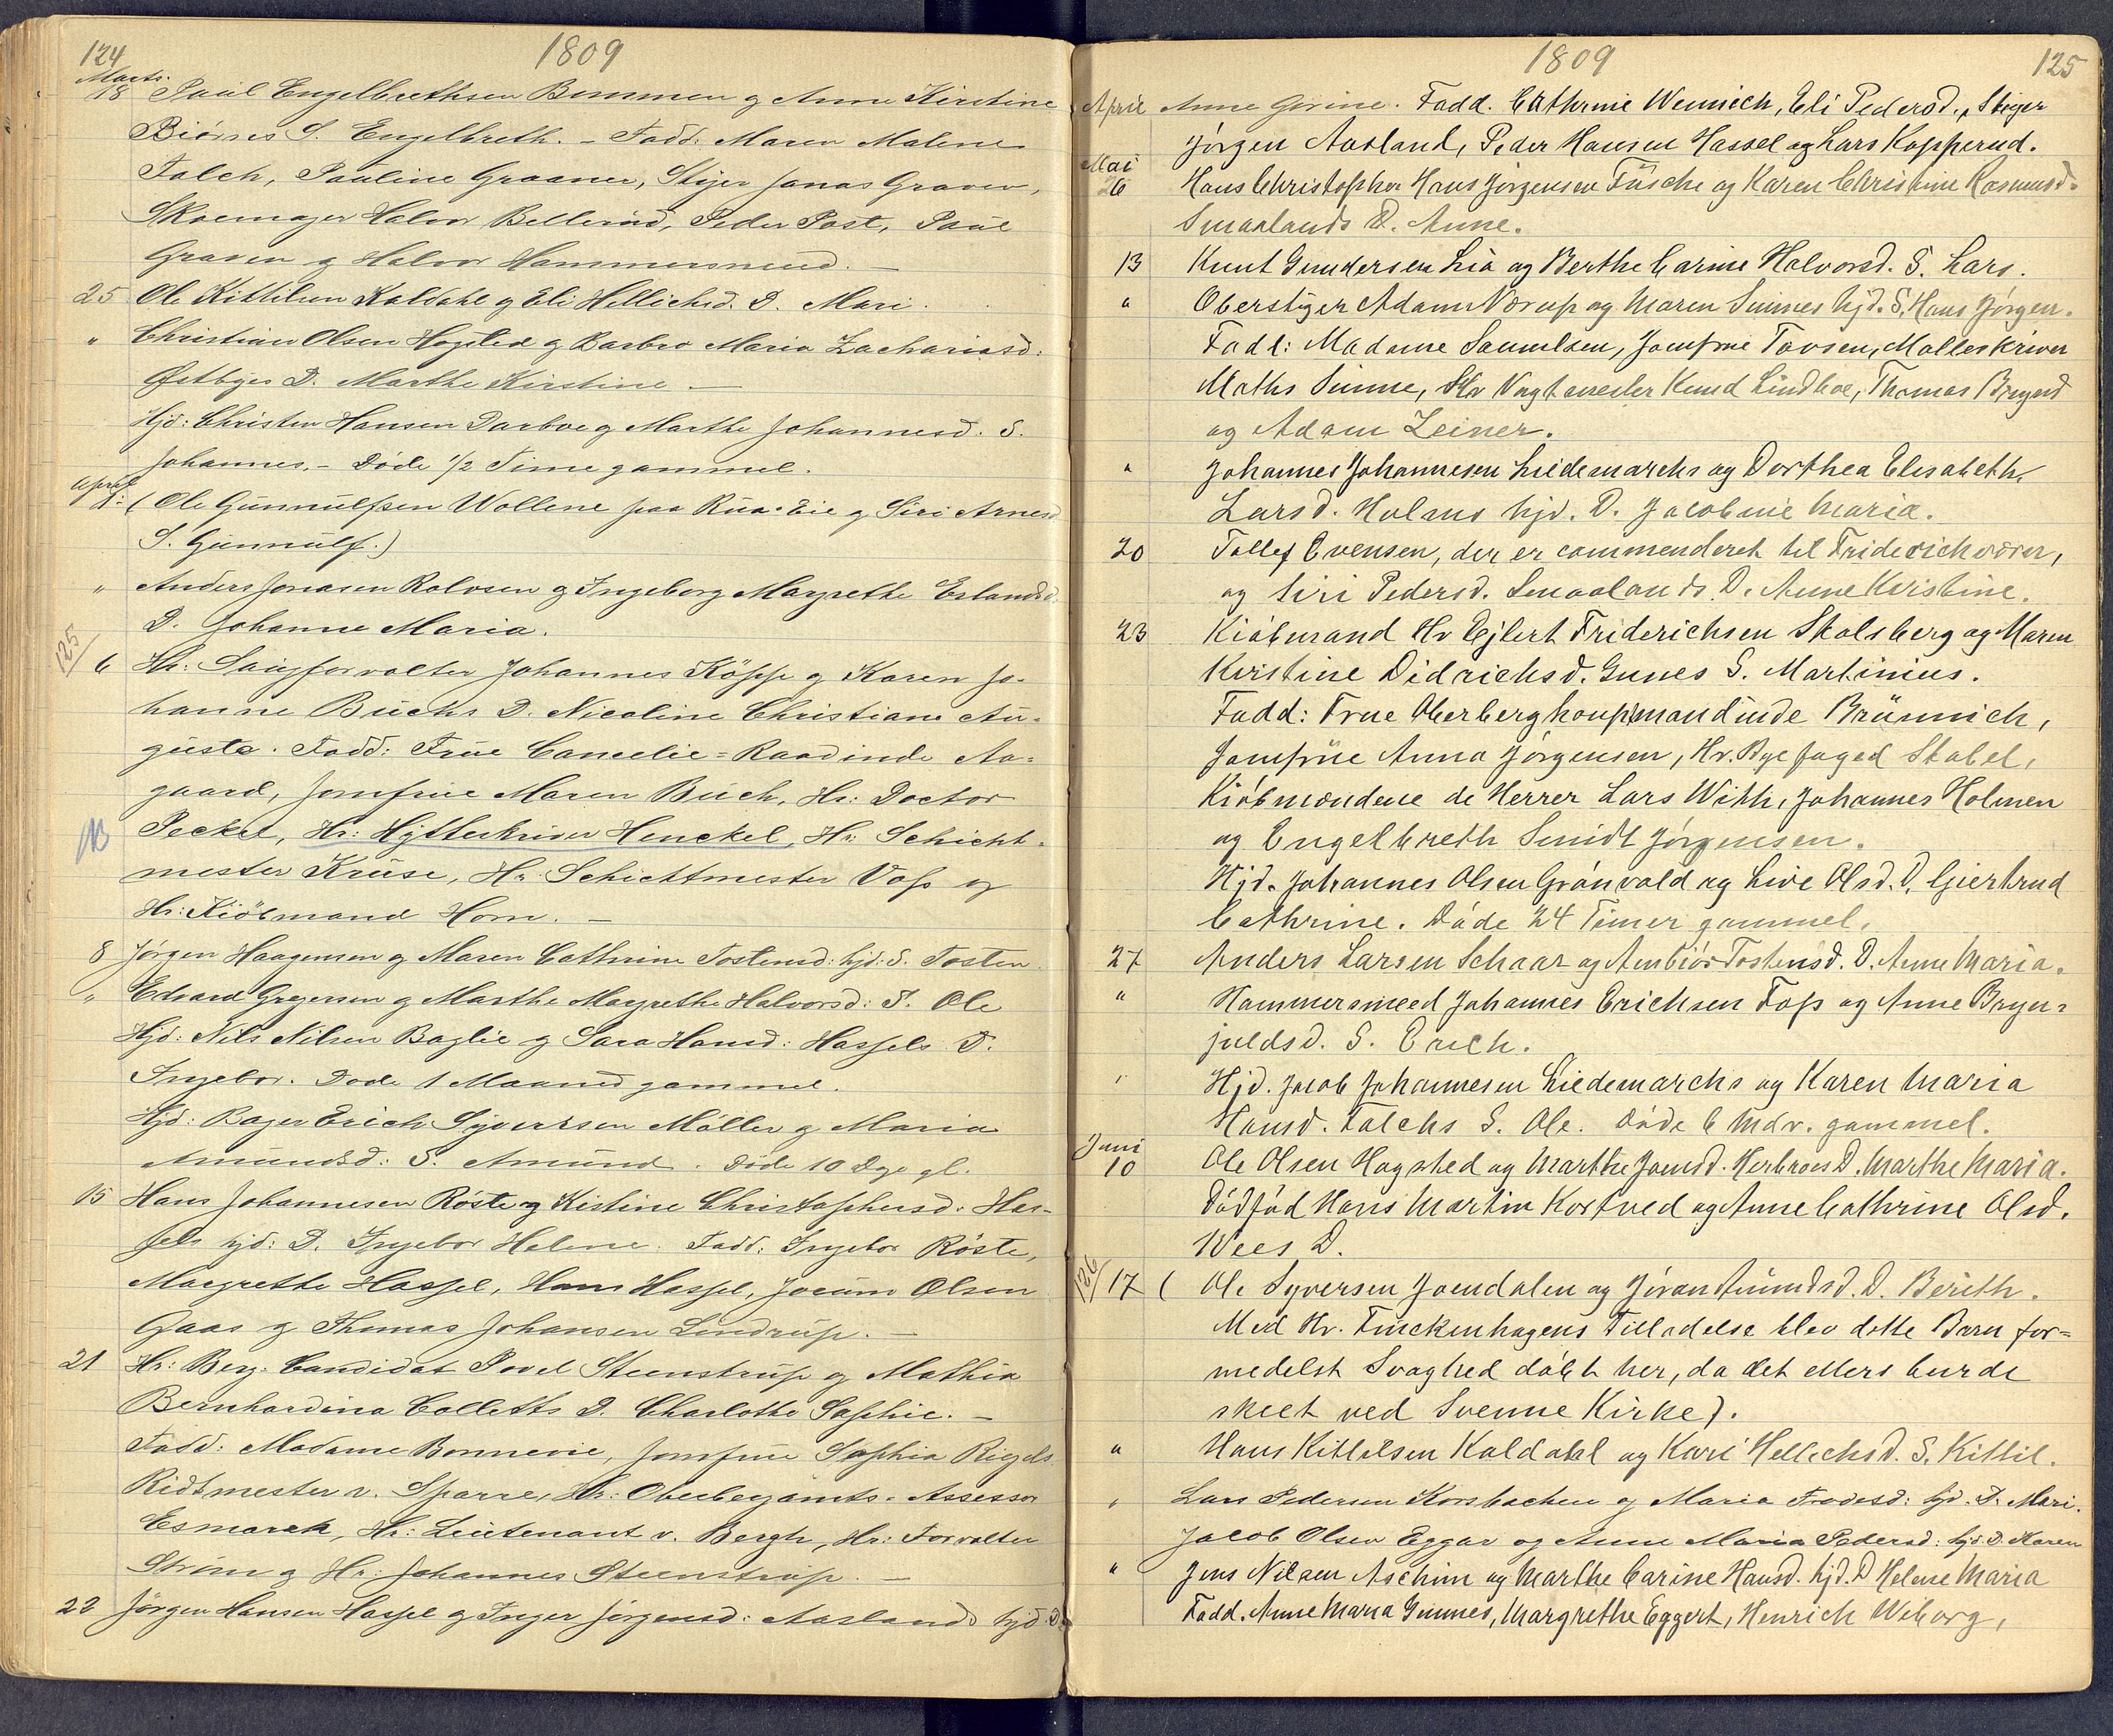 124
1809
Marts.
18 Paul Engelbrethsen Bommen og Anne Kirstine
Biørnes S. Engelbreth. – Fadd: Maren Malene
Falch, Pauline Graaner, Stiger Jonas Graven,
Skoemager Halvor Bellerud, Peder Post, Paul
Graven og Halvor Hammersneud. –
25 Ole Kittilsen Kaldahl og Eli Hellichsd. D. Mari.
" Christian Olsen Hogsted og Barbro Maria Zachariasd:
Østbyes D. Marthe Kirstine –
Hjd: Christen Hansen Darboe og Marthe Johannesd. S.
Johannes. – Døde 1/2 Time gammel.
April
(Ole Gunnulfsen Wollene paa Rua-Eie og Siri Arnesd
S. Gunnulf.)
" Anders Jonasen Rolvsen og Ingeborg Margrethe Erlandsd.
D. Johanne Maria.
125/
6 Hr: Saugforvalter Johannes Köpp og Karen Jo-
hanne Buchs D. Nicoline Christiane Au-
gusta. Fadd: Frue Cancelie=Raadinde Aa-
gaard, Jomfrue Maren Buch, Hr: Doctor
NB Peckel, Hr: Hytteskriver Henckel, Hr: Schicht-
mester Kruse, Hr. Schichtmester Voss og
Hr: Kiöbmand Horn. –
8 Jørgen Haagensen og Maren Cathrine Tostensd: hjd: S. Tosten
" Edvard Gregersen og Marthe Magrethe Halvorsd: S. Ole
Hjd: Nils Nilsen Baglie og Sara Hansd: Hassels D.
Ingebor. Døde 1 Maaned gammel.
Hjd: Bager Erich Syvertsen Møller og Maria
Amundsd: S. Amund. Døde 10 Dge gl.
15 Hans Johannesen Röste og Kistine Christophersd. Has-
sels hjd: D. Ingebor Helene. Fadd: Ingebor Röste,
Magrethe Hassel, Hans Hassel, Jocum Olsen
Gaas og Thomas Johansen Lindrup. –
21 Hr: Berg-Candidat Povel Steenstrup og Mathia
Bernhardina Colletts D. Charlotte Sophie. –
Fadd: Madame Bonnevie, Jomfrue Sophia Rigels
Ridtmester v. Sparre, Hr: Oberbergamts-Assessor
Esmarck, Hr: Lieutenant v. Bergh, Hr: Forvalter
Strøm og Hr: Johannes Steenstrup. –
23 Jörgen Hansen Hassel og Inger Jörgensd: Aaslands hjd. D.
1809
125
April Anne Gurine. Fadd. Cathrine Wennech, Eli Pedersd., Stiger
Jörgen Aasland, Peder Hansen Hassel og Lars Kopperud.
Mai
6 Hans Christopher Hans Jörgensen Füsche og Karen Christine Rasmusd.
Smaalands D. Anne.
13 Knut Gundersen Lia og Berthe Carine Halvorsd. S. Lars.
" Oberstiger Adam Norup og Maren Sinnes hjd. S. Hans Jörgen.
Fadd: Madame Samuelsen, Jomfrue Tavsen, Malleskriver
Maths Sinne, Hr Vagtmester Knud Lindboe, Thomas Brygerd
og Adam Zeiner.
" Johannes Johannesen Liedemarchs og Dorthea Elisabeth
Larsd. Holms hjd. D. Jacobmie Maria.
20 Tollef Evensen, der er commenderet til Friderichsværn,
og Siri Pedersd. Smaalands D. Anne Kirstine.
23 Kiöbmand Hr Ejlert Friderichsen Skalsberg og Maren
Kirstine Didrichsd. Gunes S. Martinius.
Fadd: Frue Oberberghaupmandinde Brünnich,
Jomfrue Anna Jörgensen, Hr. Byefoged Stabel,
Kiöbmændene de Herrer Lars With, Johannes Holmen
og Engelbreth Smidt Jörgensen.
Hjd. Johannes Olsen Grönvold og Live Olsd. D. Giertrud
Cathrine. Döde 24 Timer gammel.
27 Anders Larsen Schaar og Ambiör Tostensd. D. Anne Maria.
" Hammersmeed Johannes Erichsen Foss og Anne Bryn-
juldsd. S. Erich.
" Hjd. Jacob Johannesen Liedemarchs og Karen Maria
Hansd. Falchs S. Ole. Döde 6 Mdr. gammel.
Juni
10 Ole Olsen Hagsted og Marthe Joensd. Herbroes D. Marthe Maria.
Dödföd Hans Martin Kortved og Anne Cathrine Olsd.
Wees D.
126/
17 ( Ole Syversen Joendalen og Jöran Amundsd. D. Berith.
Med Hr. Finckenhagens Tilladelse blev dette Barn for-
medelst Svaghed döbt her, da det ellers burde
skeet ved Svenne Kirke).
" Hans Kittilsen Kaldahl og Kari Hellechsd. S. Kittil.
" Lars Pedersen Korsbachen og Maria Frodesd: hjd. D. Mari.
Jacob Olsen Eggar og Anne Maria Pedersd: hjd. D. Karen
" Jens Nilsen Aschim og Marthe Carine Hansd. hjd. D Helene Maria
Fadd. Anne Maria Gunnes, Margrethe Eggert, Henrich Wiborg,